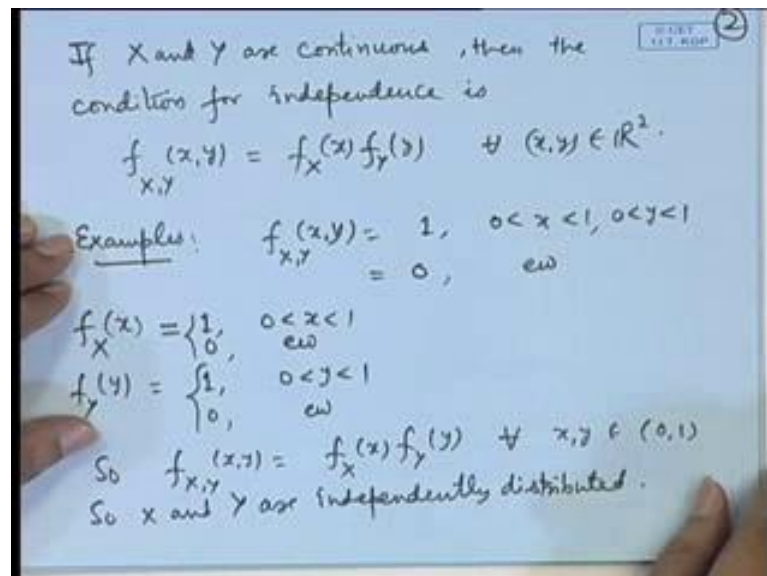 If X and Y are continuous, then the
condition for independence is
f_{X,Y}(x,y) = f_X(x) f_Y(y) ∀ (x,y) ∈ ℝ².
Examples: f_{X,Y}(x,y) = 1, 0<x<1, 0<y<1
= 0, ew
f_X(x) = {1, 0<x<1
0, ew
f_Y(y) = {1, 0<y<1
0, ew
So f_{X,Y}(x,y) = f_X(x) f_Y(y) ∀ x,y ∈ (0,1)
So X and Y are independently distributed.
I.I.T. KGP
2